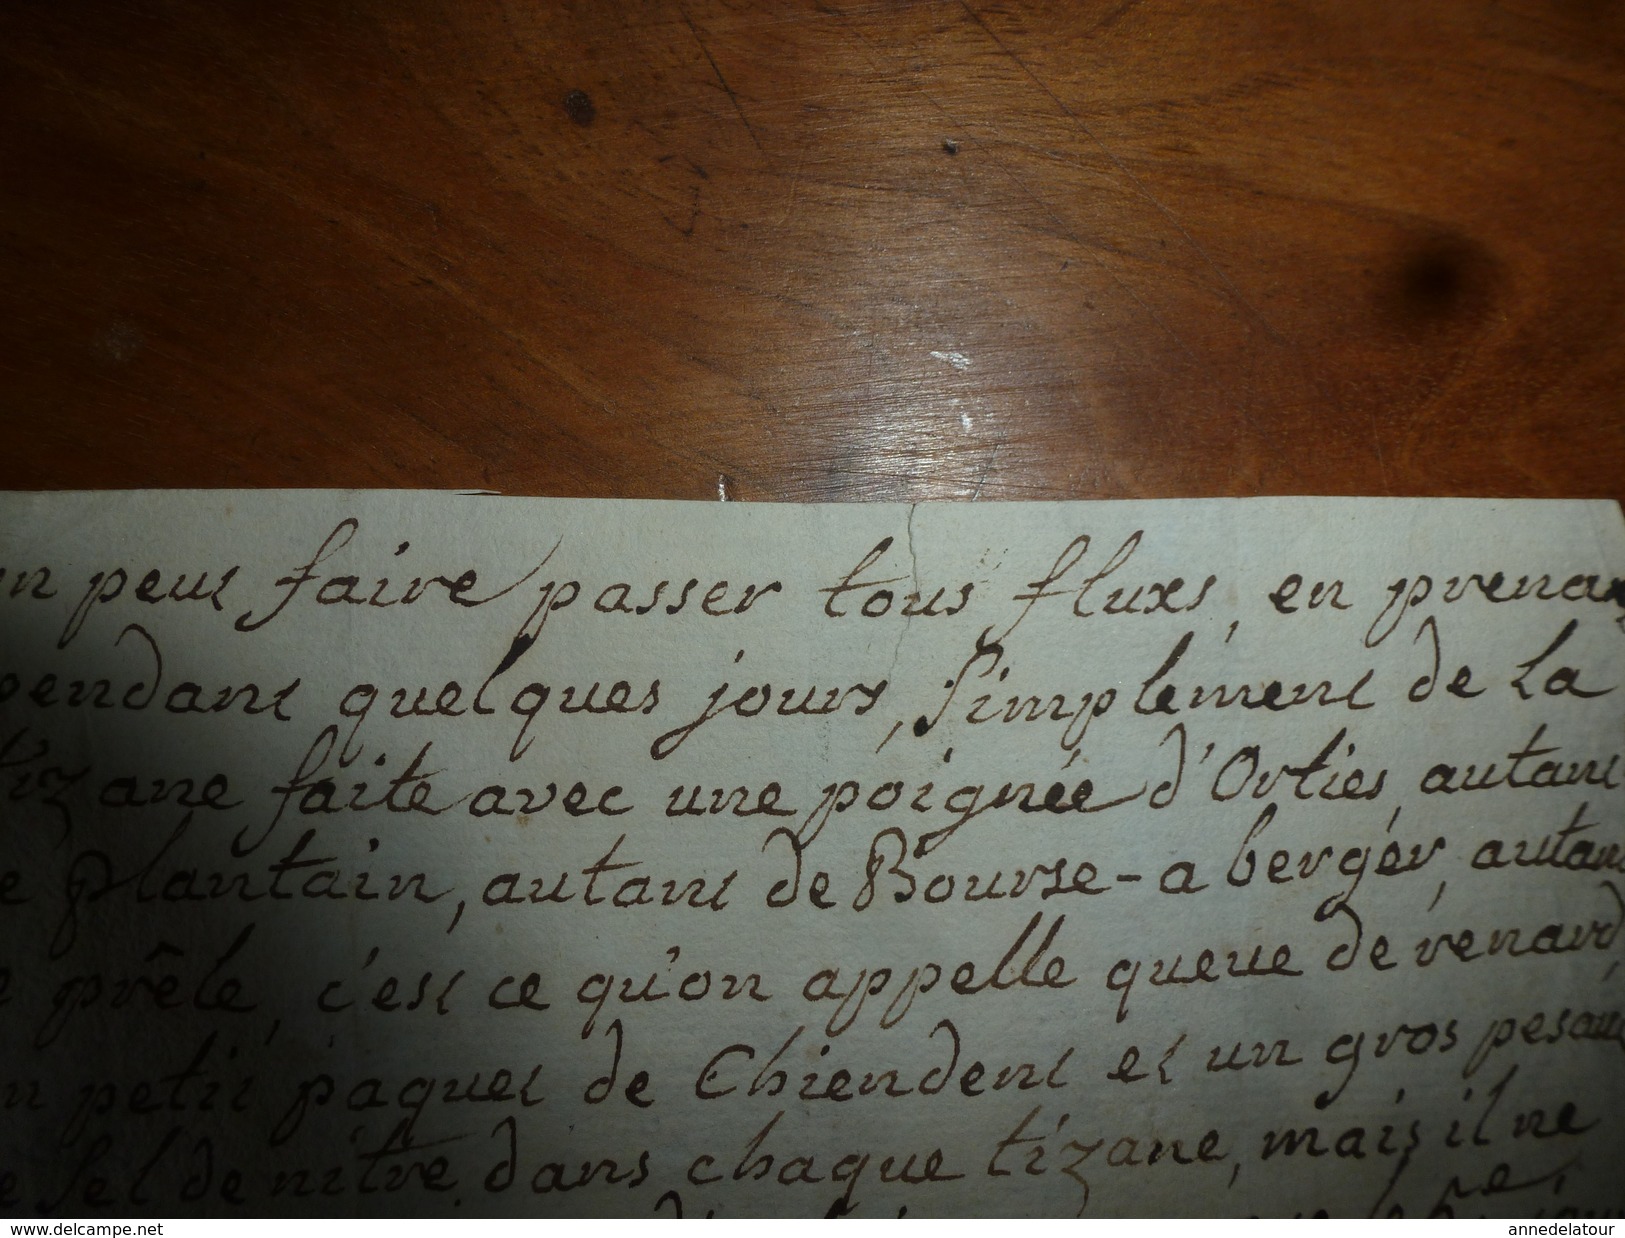 n peut faire passer tous fluxs, en prenant
pendant quelques jours, simplement de la
tizane faite avec une poignée d'Orties, autant
e plantain, autant de Bourse-a berger, autant
e prêle, c'est ce qu'on appelle queue de renard,
n petit paquet de Chiendent et un gros pesant
e sel de nitre dans chaque tizane, mais il ne
www.delcampe.net
annedelatour